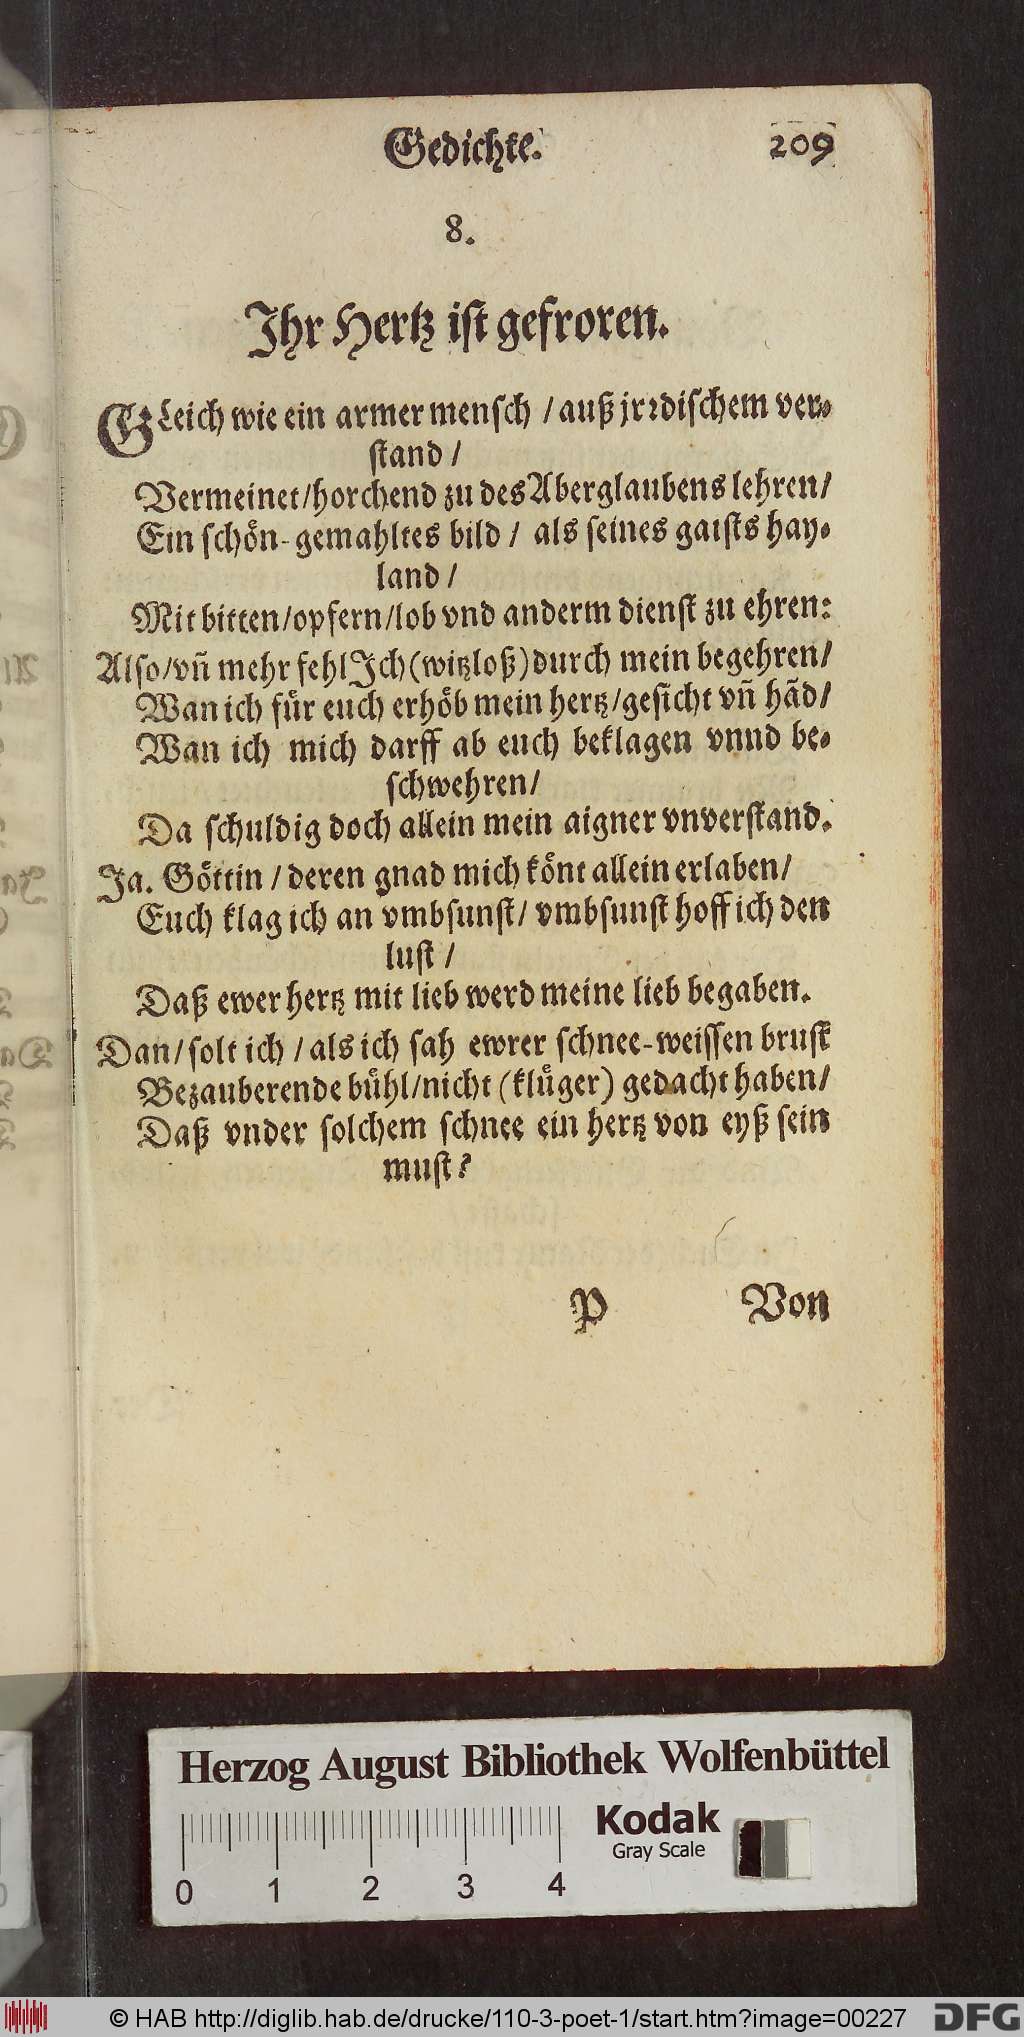 Gedichte. 209
8.
Ihr Hertz ist gefroren.
GLeich wie ein armer mensch / auß jrꝛdischem ver-
stand /
Vermeinet / horchend zu des Aberglaubens lehren /
Ein schön-gemahltes bild / als seines gaists hay-
land /
Mit bitten / opfern / lob vnd anderm dienst zu ehren:
Also / vñ mehr fehl Ich (witzloß) durch mein begehren /
Wan ich für euch erhöb mein hertz / gesicht vñ hãd /
Wan ich mich darff ab euch beklagen vnnd be-
schwehren /
Da schuldig doch allein mein aigner vnverstand.
Ja. Göttin / deren gnad mich könt allein erlaben /
Euch klag ich an vmbsunst / vmbsunst hoff ich den
lust /
Daß ewer hertz mit lieb werd meine lieb begaben.
Dan / solt ich / als ich sah ewrer schnee-weissen brust
Bezauberende bühl / nicht (klüger) gedacht haben /
Daß vnder solchem schnee ein hertz von eyß sein
must?
P Von
Herzog August Bibliothek Wolfenbüttel
Kodak
Gray Scale
0 1 2 3 4
© HAB http://diglib.hab.de/drucke/110-3-poet-1/start.htm?image=00227 DFG